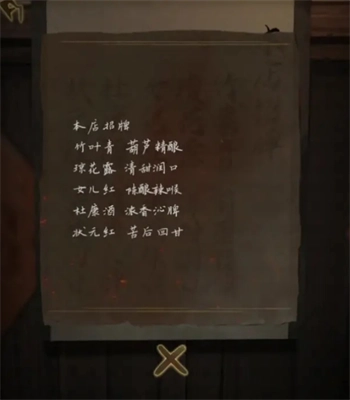 本店招牌
竹叶青 葫芦精酿
琼花露 清甜润口
女儿红 陈酿辣喉
杜康酒 浓香沁脾
状元红 苦后回甘